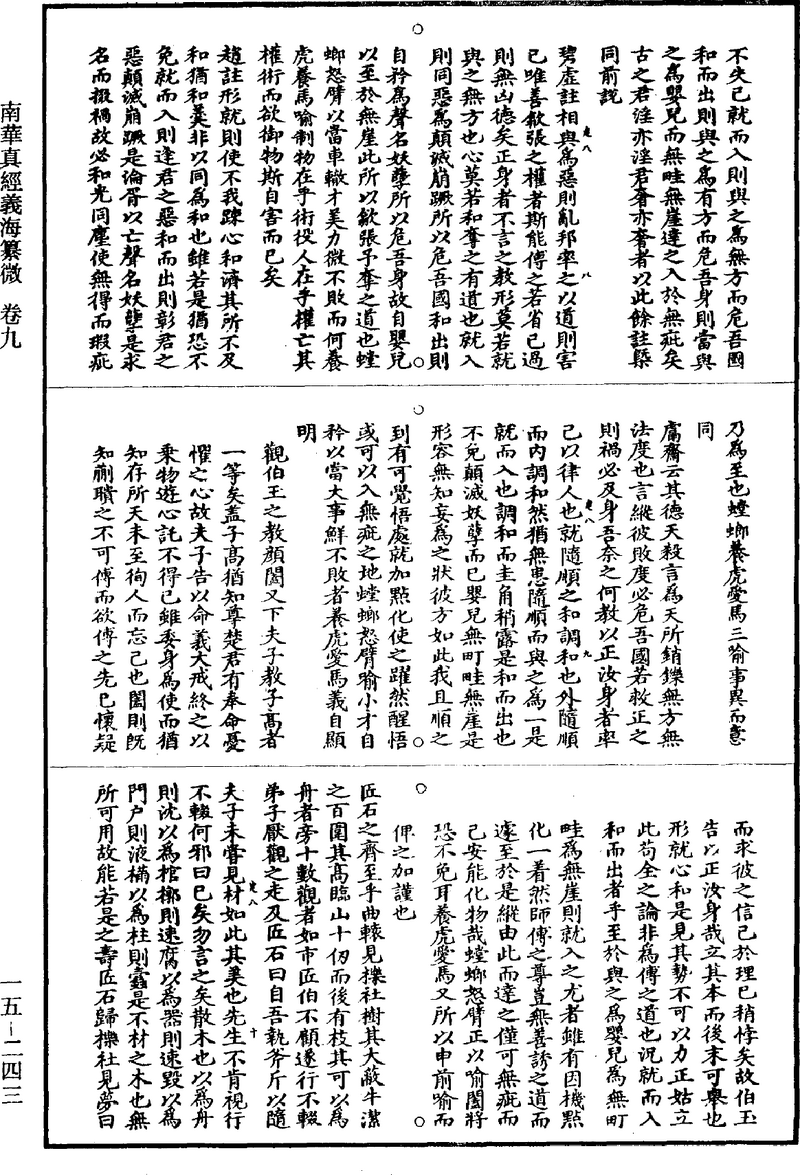 南華真經義海纂微 卷九
一五－二四三
不失己就而入則與之為無方而危吾國
和而出則與之為有方而危吾身則當與
之為嬰兒而無畦無崖達之入於無疵矣
古之君淫亦淫君奢亦奢者以此餘註槩
同前說
碧虛註相與為惡則亂邦率之以道則害
己唯善歙張之權者斯能傅之若省己過
則無凶德矣正身者不言之教形莫若就
與之無方也心莫若和奪之有道也就入
則同惡為顛滅崩蹶所以危吾國和出則
自矜為聲名妖孽所以危吾身故自嬰兒
以至於無崖此所以歙張予奪之道也螳
螂怒臂以當車轍才美力微不敗而何養
虎養馬喻制物在乎術役人在乎權亡其
權術而欲御物斯自害而已矣
趙註形就則使不我踈心和濟其所不及
和猶和羹非以同為和也雖若是猶恐不
免就而入則逢君之惡和而出則彰君之
惡顛滅崩蹶是淪胥以亡聲名妖孽是求
名而掇禍故必和光同塵使無得而瑕疵
乃為至也螳螂養虎愛馬三喻事異而意
同
鬳齋云其德天殺言為天所銷鑠無方無
法度也言縱彼敗度必危吾國若救正之
則禍必及身吾奈之何教以正汝身者率
己以律人也就隨順之和調和也外隨順
而內調和然猶無患隨順而與之為一是
就而入也調和而圭角稍露是和而出也
不免顛滅妖孽而已嬰兒無町畦無崖是
形容無知妄為之狀彼方如此我且順之
到有可覺悟處就加點化使之躍然醒悟
或可以入無疵之地螳螂怒臂喻小才自
矜以當大事鮮不敗者養虎愛馬義自顯
明
觀伯玉之教顏闔又下夫子教子髙者
一等矣盖子髙猶知尊楚君有奉命憂
懼之心故夫子告以命義大戒終之以
乘物遊心託不得已雖委身為使而猶
知存所天未至徇人而忘己也闔則既
知蒯聵之不可傅而欲傅之先已懷疑
而求彼之信己於理已稍悖矣故伯玉
告以正汝身哉立其本而後末可舉也
形就心和是見其勢不可以力正姑立
此苟全之論非為傅之道也況就而入
和而出者乎至於與之為嬰兒為無町
畦為無崖則就入之尤者雖有因機點
化一着然師傅之尊豈無善誘之道而
遽至於是縱由此而達之僅可無疵而
己安能化物哉螳螂怒臂正以喻闔將
恐不免耳養虎愛馬又所以申前喻而
俾之加謹也
匠石之齊至乎曲轅見櫟社樹其大蔽牛潔
之百圍其髙臨山十仞而後有枝其可以為
舟者旁十數觀者如市匠伯不顧遂行不輟
弟子厭觀之走及匠石曰自吾執斧斤以隨
夫子未嘗見材如此其美也先生不肯視行
不輟何邪曰已矣勿言之矣散木也以為舟
則沈以為棺槨則速腐以為器則速毀以為
門户則液樠以為柱則蠹是不材之木也無
所可用故能若是之壽匠石歸櫟社見夢曰